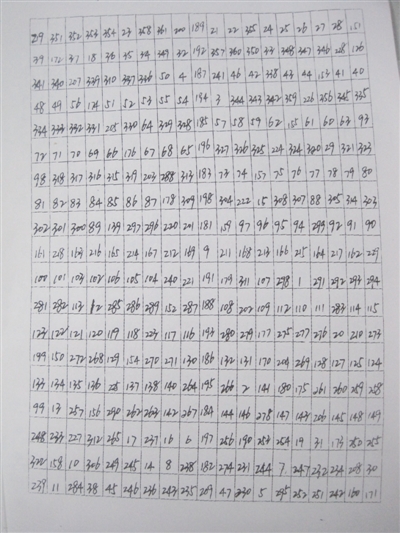 29 351 352 353 354 23 358 361 200 189 21 22 355 24 25 26 27 28 151
39 172 37 18 36 35 34 349 32 192 357 360 350 33 348 347 346 38 126
341 340 207 339 310 337 336 50 4 187 241 46 42 338 43 44 153 41 40
48 49 56 174 51 52 53 55 54 194 3 344 343 342 359 226 356 345 335
334 333 332 331 205 330 64 329 328 185 57 58 59 62 155 61 60 63 93
72 71 70 69 66 176 67 68 65 196 327 326 325 224 324 320 29 321 323
98 318 317 316 315 319 203 288 313 183 73 74 157 75 76 77 78 79 80
81 82 83 84 85 86 87 178 309 198 304 222 15 308 307 88 305 314 303
302 301 300 89 139 297 296 220 201 181 159 97 96 95 94 299 92 91 90
161 218 163 216 165 214 167 212 169 9 211 168 213 166 215 164 217 162 229
100 101 103 102 106 105 104 240 221 191 179 311 107 298 1 291 292 293 294
281 282 12 285 286 289 152 287 188 108 202 109 112 110 111 283 114 115
123 122 121 120 119 118 223 117 116 193 280 279 177 275 277 276 20 210 273
199 150 272 268 129 154 270 271 130 186 132 131 170 204 269 128 127 125 124
133 134 135 136 137 138 140 264 195 266 2 141 180 175 261 260 259 258
99 13 257 156 290 262 263 142 267 184 144 146 278 147 143 206 145 148 149
248 233 227 312 265 17 237 16 6 197 256 190 253 254 19 31 173 250 255
322 158 10 306 249 245 14 8 238 182 274 231 244 7 247 232 234 208 30
239 11 284 38 45 246 236 243 235 209 47 230 5 295 252 251 242 160 171